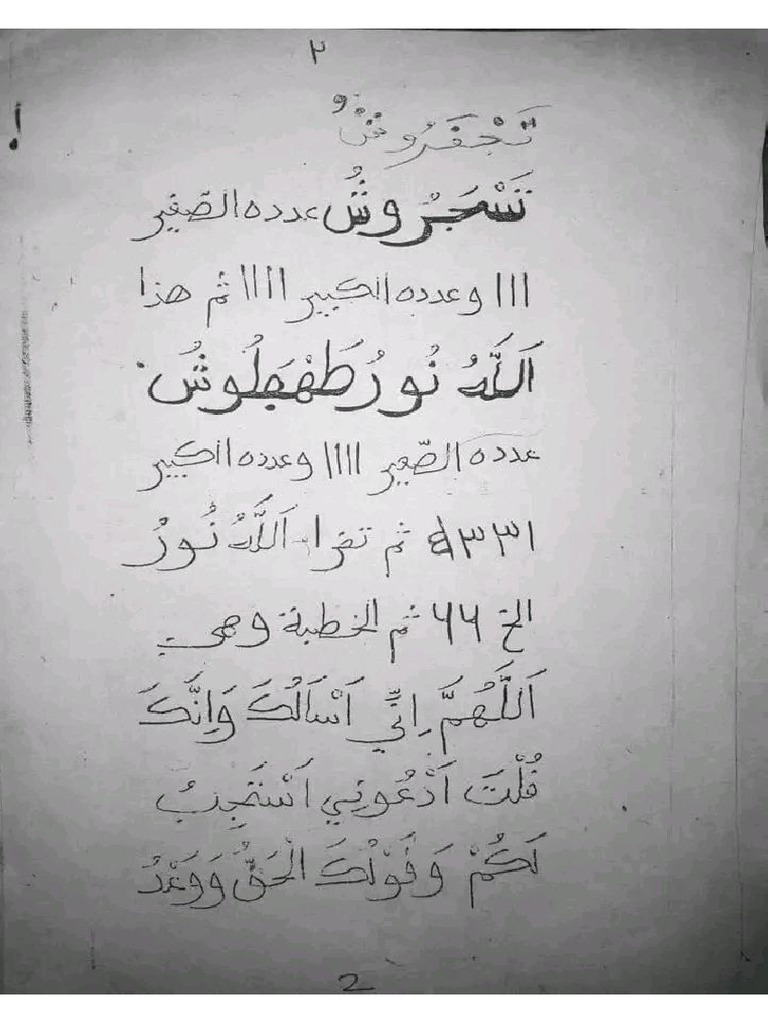 ٢
تَجْفَرُوشٌ
تَسْجَرُوشُ عدده الصّغير
١١١ وعدده الكبير ١١١١ ثم هذا
اَللَّهُ نُورُ طَهْهَلُوشُ
عدده الصّغير ١١١١ وعدده الكبير
ثم تقرا اَللَّهُ نُورُ
الخ ٦٦ ثم الخطبة وهي
اَللَّهُمَّ اِنِّي اَسْاَلُكَ وَاِنَّكَ
قُلْتَ اَدْعُونِي اَسْتَجِبُ
لَكُمْ وَقَوْلُكَ الْحَقُّ وَوَعْدُ
2